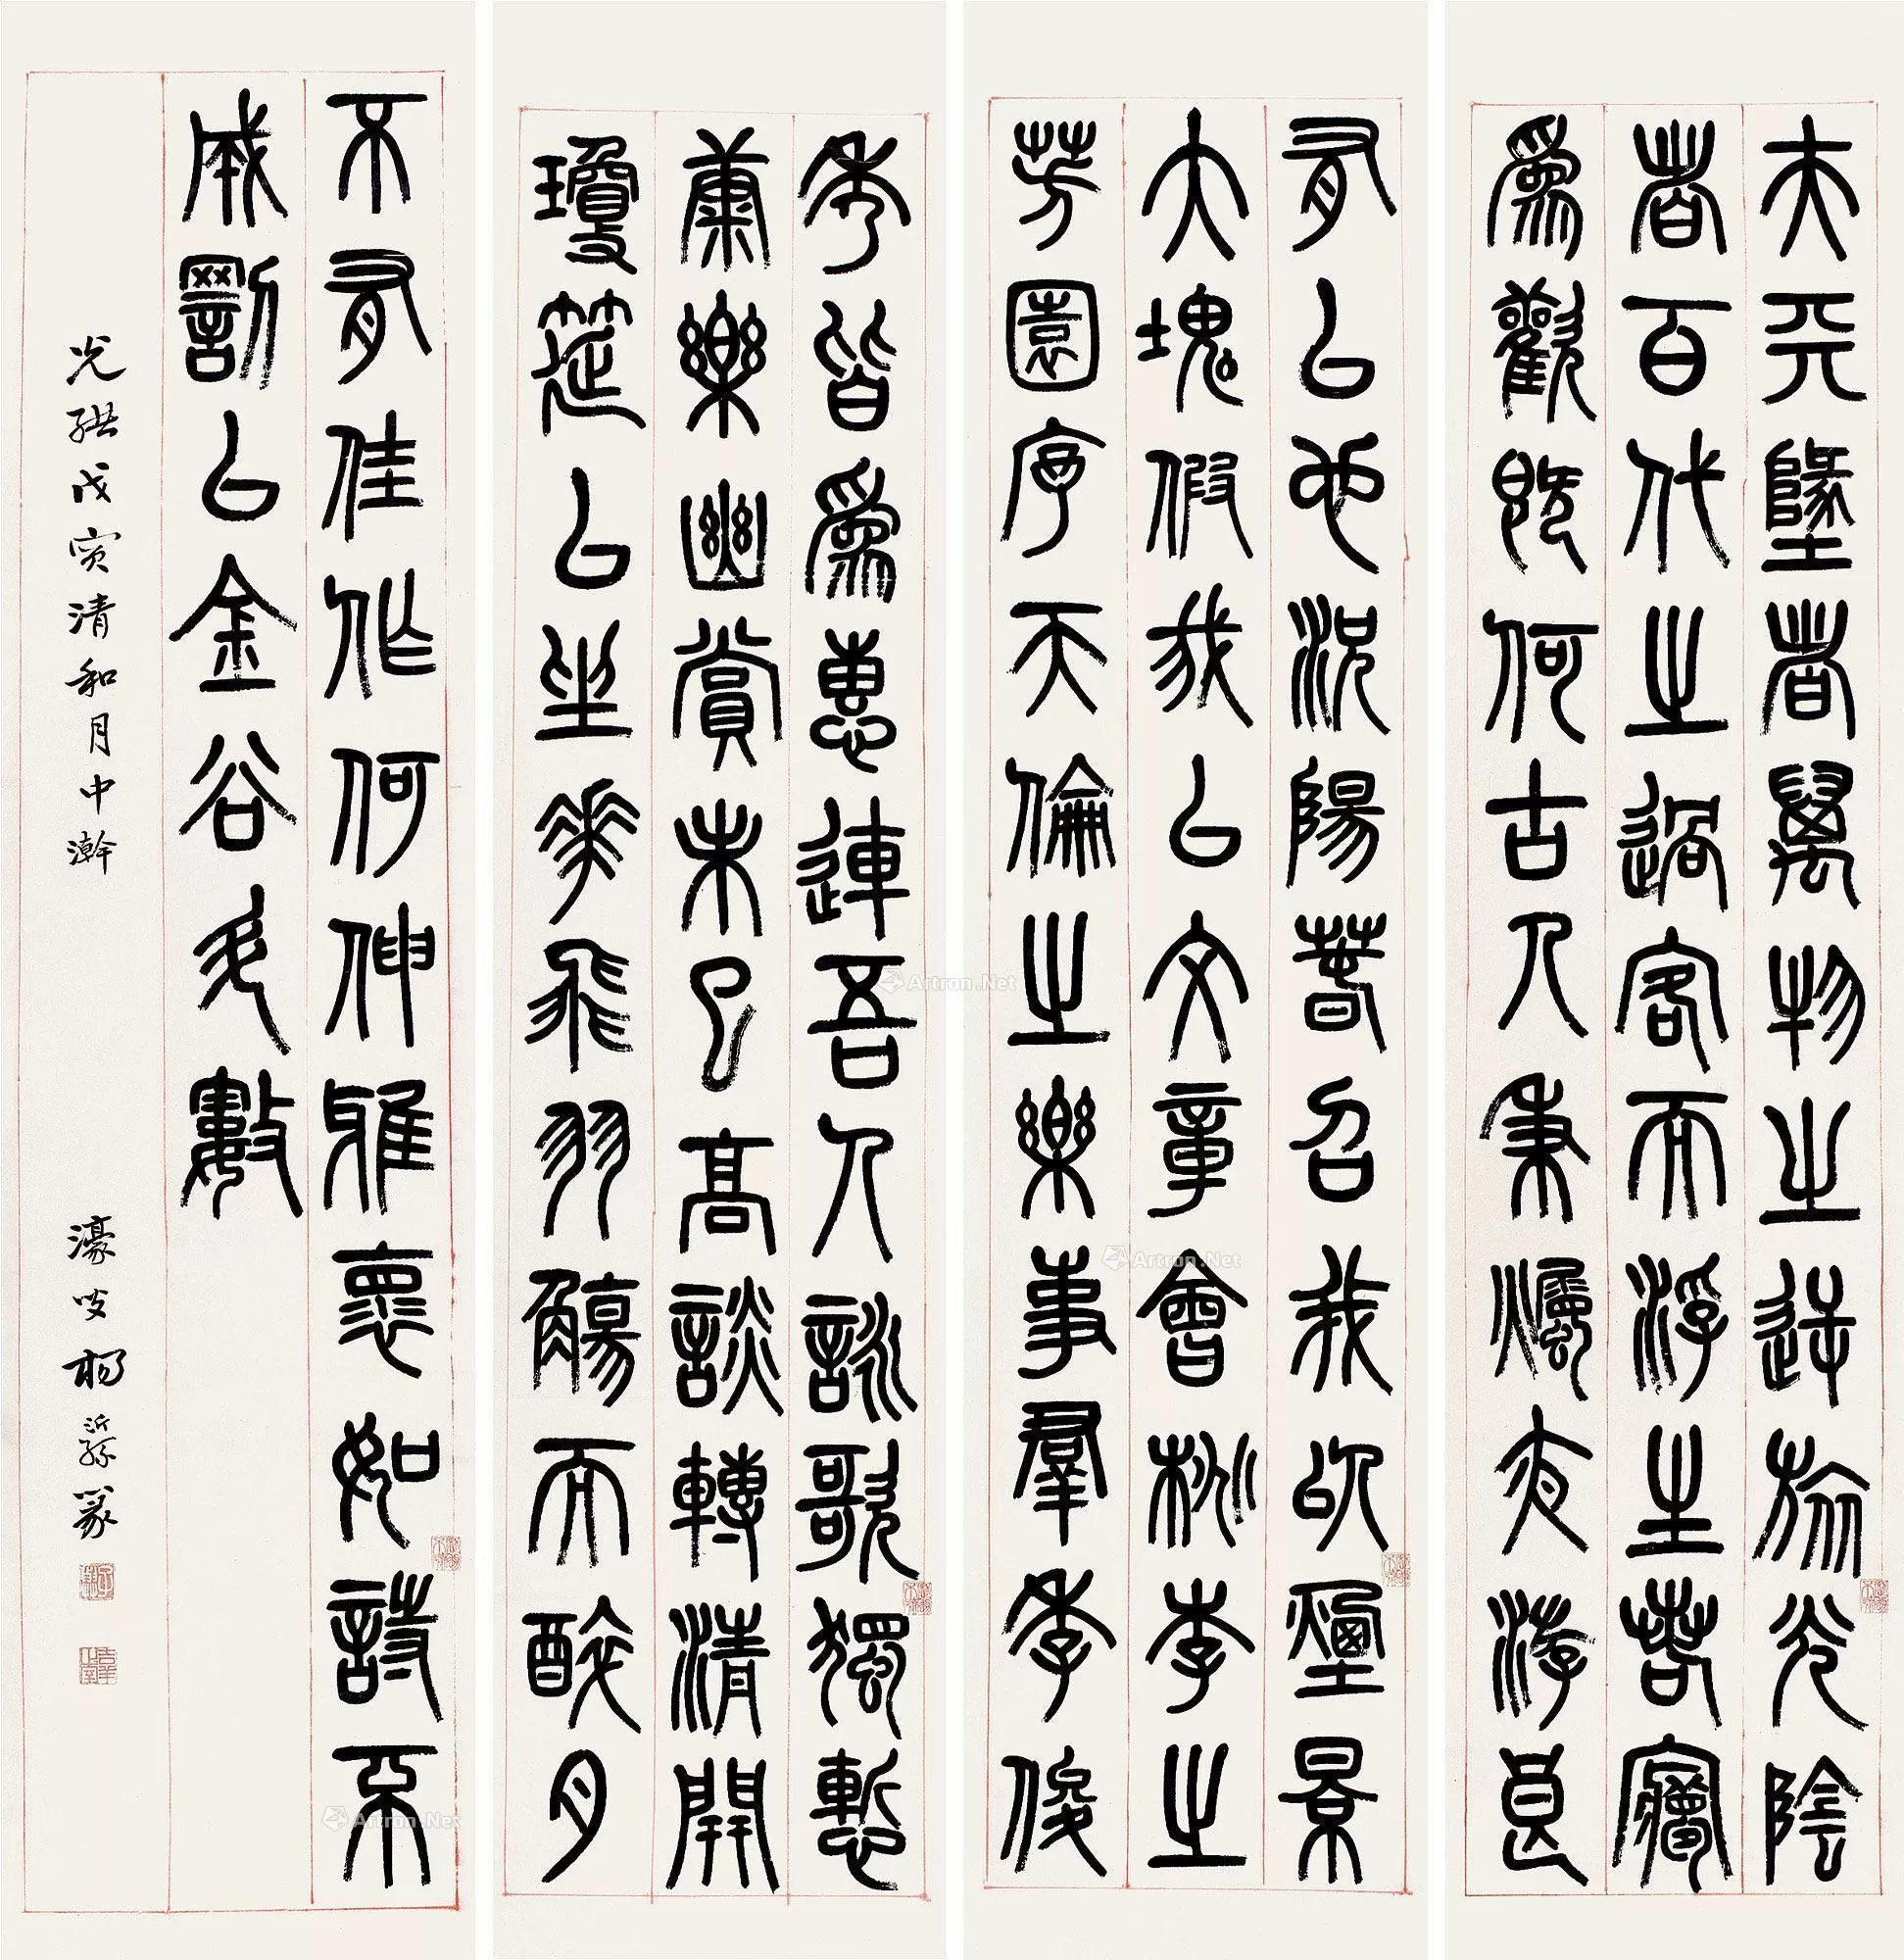 夫天墬者萬物之逆旅光陰
者百代之過客而浮生若夢
爲歡既何古人秉燭夜游良
有以也況陽春召我以煙景
大塊假我以文章會桃李之
芳園序天倫之樂事羣季俊
秀皆爲惠連吾人詠歌獨慙
康樂幽賞未已高談轉清開
瓊筵以坐花飛羽觴而醉月
不有佳作何伸雅懷如詩不
成罰以金谷多數
光緒戊寅清和月中澣 濠叟楊沂孫篆
Artron.Net
Artron.Net
Artron.Net